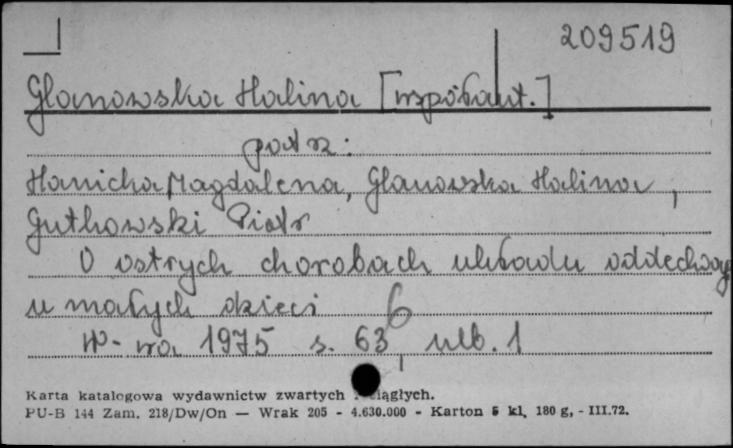 209519
Glanowska Halina [współaut.]
patrz:
Hanicka Magdalena, Glanowska Halina,
Gutkowski Piotr
O ostrych chorobach układu oddechowy
u małych dzieci 6
W-wa 1975 s. 63, nlb. 1
Karta katalogowa wydawnictw zwartych ciągłych.
PU-B 144 Zam. 218/Dw/On — Wrak 205 - 4.630.000 - Karton 5 kl, 180 g, - III.72.